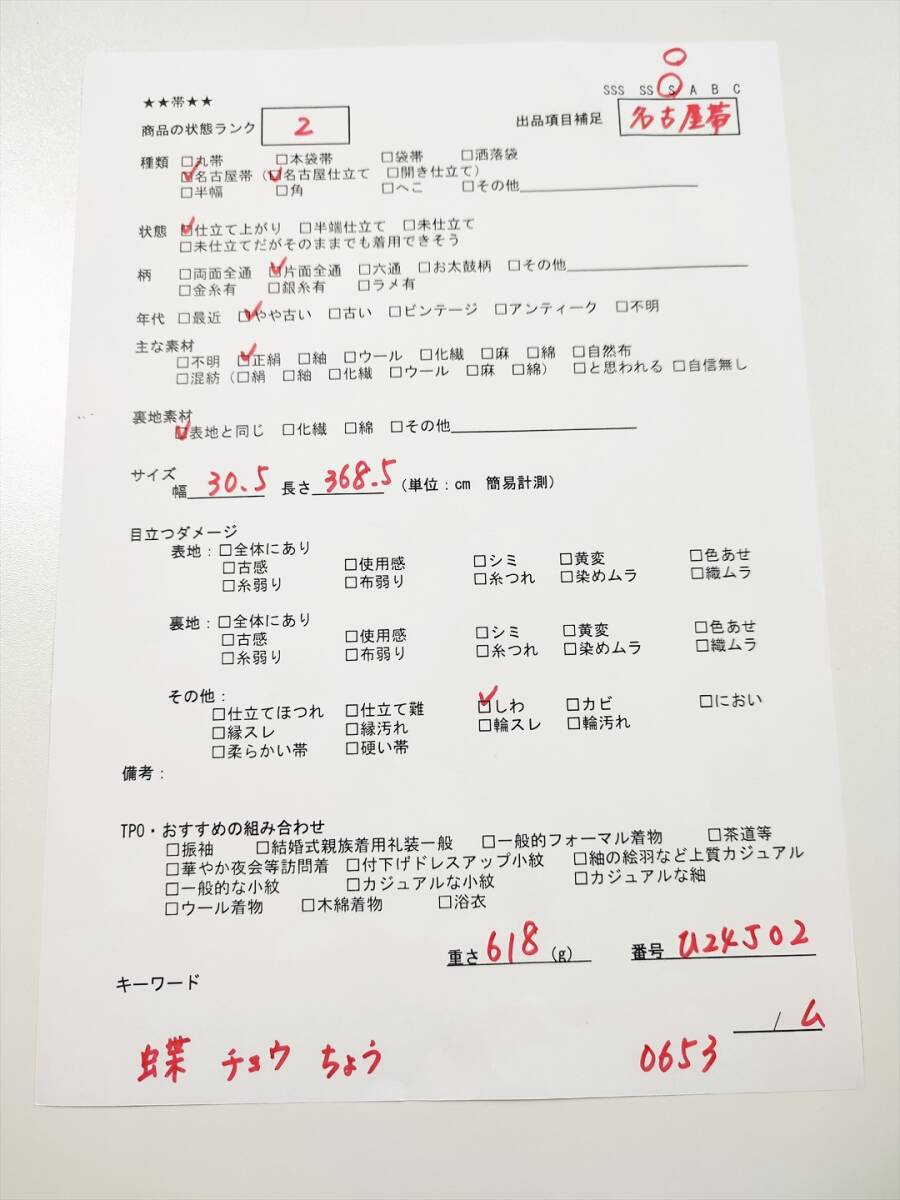 SSS SS S A B C
★★帯★★
商品の状態ランク 2 出品項目補足 名古屋帯
種類 □丸帯 □本袋帯 □袋帯 □洒落袋
☑名古屋帯（☑名古屋仕立て □開き仕立て）
□半幅 □角 □へこ □その他
状態 ☑仕立て上がり □半端仕立て □未仕立て
□未仕立てだがそのままでも着用できそう
柄 □両面全通 ☑片面全通 □六通 □お太鼓柄 □その他
□金糸有 □銀糸有 □ラメ有
年代 □最近 ☑やや古い □古い □ビンテージ □アンティーク □不明
主な素材
□不明 ☑正絹 □紬 □ウール □化繊 □麻 □綿 □自然布
□混紡（□絹 □紬 □化繊 □ウール □麻 □綿） □と思われる □自信無し
裏地素材
☑表地と同じ □化繊 □綿 □その他
サイズ
幅 30.5 長さ 368.5 （単位：cm 簡易計測）
目立つダメージ
表地：□全体にあり
□古感 □使用感 □シミ □黄変 □色あせ
□糸弱り □布弱り □糸つれ □染めムラ □織ムラ
裏地：□全体にあり
□古感 □使用感 □シミ □黄変 □色あせ
□糸弱り □布弱り □糸つれ □染めムラ □織ムラ
その他：
□仕立てほつれ □仕立て難 ☑しわ □カビ □におい
□縁スレ □縁汚れ □輪スレ □輪汚れ
□柔らかい帯 □硬い帯
備考：
TPO・おすすめの組み合わせ
□振袖 □結婚式親族着用礼装一般 □一般的フォーマル着物 □茶道等
□華やか夜会等訪問着 □付下げドレスアップ小紋 □紬の絵羽など上質カジュアル
□一般的な小紋 □カジュアルな小紋 □カジュアルな紬
□ウール着物 □木綿着物 □浴衣
重さ 618 (g) 番号 U24J02
キーワード
/ ム
蝶 チョウ ちょう 0653